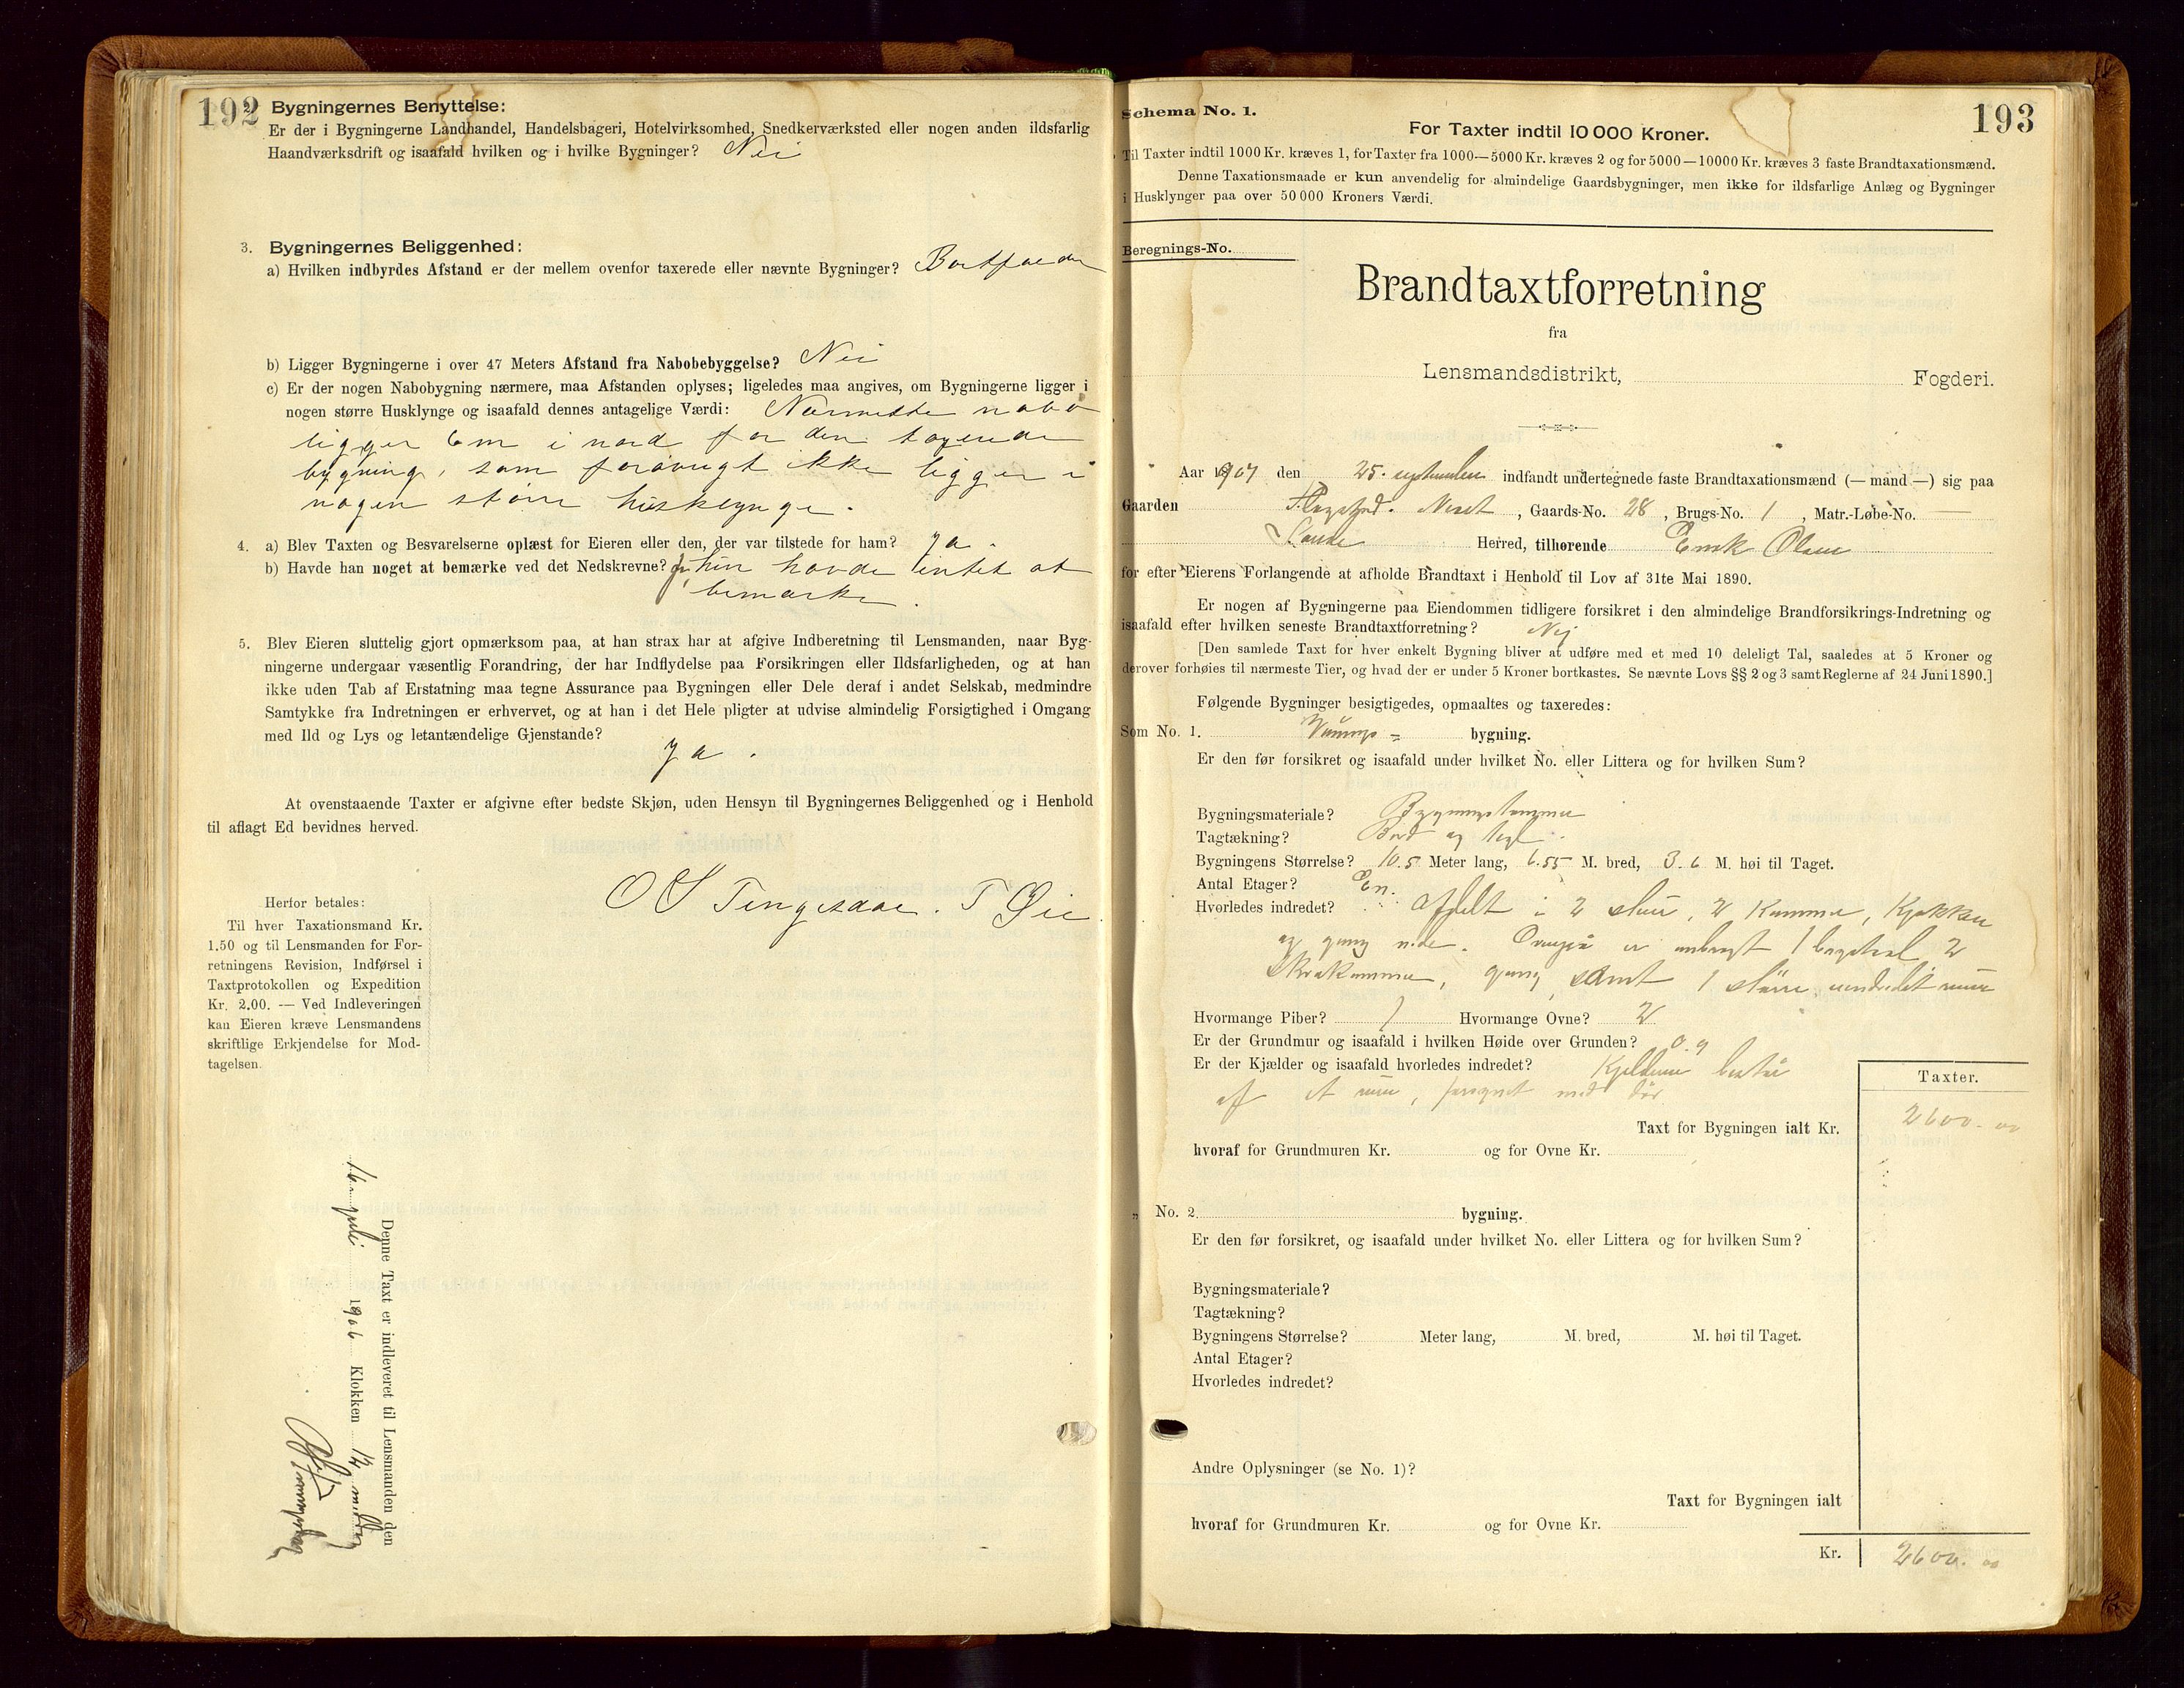 192 Bygningernes Benyttelse:
Er der i Bygningerne Landhandel, Handelsbageri, Hotelvirksomhed, Snedkerværksted eller nogen anden ildsfarlig
Haandværksdrift og isaafald hvilken og i hvilke Bygninger? Nei
3. Bygningernes Beliggenhed:
a) Hvilken indbyrdes Afstand er der mellem ovenfor taxerede eller nævnte Bygninger? Bortfalder
b) Ligger Bygningerne i over 47 Meters Afstand fra Nabobebyggelse? Nei
c) Er der nogen Nabobygning nærmere, maa Afstanden oplyses; ligeledes maa angives, om Bygningerne ligger i
nogen større Husklynge og isaafald dennes antagelige Værdi: Nærmeste nabo
ligger 6 m i nord for den
bygning, som forøvrigt ikke ligger i
nogen større husklynge.
4. a) Blev Taxten og Besvarelserne oplæst for Eieren eller den, der var tilstede for ham? Ja.
b) Havde han noget at bemærke ved det Nedskrevne? havde intet at
bemærke.
5. Blev Eieren sluttelig gjort opmærksom paa, at han strax har at afgive Indberetning til Lensmanden, naar Byg-
ningerne undergaar væsentlig Forandring, der har Indflydelse paa Forsikringen eller Ildsfarligheden, og at han
ikke uden Tab af Erstatning maa tegne Assurance paa Bygningen eller Dele deraf i andet Selskab, medmindre
Samtykke fra Indretningen er erhvervet, og at han i det Hele pligter at udvise almindelig Forsigtighed i Omgang
med Ild og Lys og letantændelige Gjenstande?
Ja.
At ovenstaaende Taxter er afgivne efter bedste Skjøn, uden Hensyn til Bygningernes Beliggenhed og i Henhold
til aflagt Ed bevidnes herved.
O S Tengesdal. T Øie
Herfor betales:
Til hver Taxationsmand Kr.
1.50 og til Lensmanden for For-
retningens Revision, Indførsel i
Taxtprotokollen og Expedition
Kr. 2.00. — Ved Indleveringen
kan Eieren kræve Lensmandens
skriftlige Erkjendelse for Mod-
tagelsen.
Denne Taxt er indleveret til Lensmanden den
16 juli 1906 Klokken 12 middag
Schema No. 1.
193
For Taxter indtil 10 000 Kroner.
Til Taxter indtil 1000 Kr. kræves 1, for Taxter fra 1000—5000 Kr. kræves 2 og for 5000—10000 Kr. kræves 3 faste Brandtaxationsmænd.
Denne Taxationsmaade er kun anvendelig for almindelige Gaardsbygninger, men ikke for ildsfarlige Anlæg og Bygninger
i Husklynger paa over 50 000 Kroners Værdi.
Beregnings-No.
Brandtaxtforretning
fra
Lensmandsdistrikt, Fogderi.
Aar 1907 den 25. september indfandt undertegnede faste Brandtaxationsmænd (— mand —) sig paa
Gaarden Neset, Gaards-No. 28, Brugs-No. 1, Matr.-Løbe-No. —
Herred, tilhørende Olsen
for efter Eierens Forlangende at afholde Brandtaxt i Henhold til Lov af 31te Mai 1890.
Er nogen af Bygningerne paa Eiendommen tidligere forsikret i den almindelige Brandforsikrings-Indretning og
isaafald efter hvilken seneste Brandtaxtforretning? Nej
[Den samlede Taxt for hver enkelt Bygning bliver at udføre med et med 10 deleligt Tal, saaledes at 5 Kroner og
derover forhøies til nærmeste Tier, og hvad der er under 5 Kroner bortkastes. Se nævnte Lovs §§ 2 og 3 samt Reglerne af 24 Juni 1890.]
Følgende Bygninger besigtigedes, opmaaltes og taxeredes:
Som No. 1. Vaanings= bygning.
Er den før forsikret og isaafald under hvilket No. eller Littera og for hvilken Sum?
Bygningsmateriale? Bygningstømmer
Tagtækning? Bord og tegl.
Bygningens Størrelse? 10.5 Meter lang, 6.55 M. bred, 3.6 M. høi til Taget.
Antal Etager? En.
Hvorledes indredet? Afdelt i 2 stuer, 2 Kammer, Kjøkken
og gang nede. Ovenpaa er anbragt 1 2
Skraakammer, gang samt 1 større uindredet rum
Hvormange Piber? 1 Hvormange Ovne? 2
Er der Grundmur og isaafald i hvilken Høide over Grunden? 0.9
Er der Kjælder og isaafald hvorledes indredet? Kjelderen bestaar
af et rum, forsynet med dør
Taxter.
Taxt for Bygningen ialt Kr. 2600.00
hvoraf for Grundmuren Kr. og for Ovne Kr.
„ No. 2. bygning.
Er den før forsikret, og isaafald under hvilket No. eller Littera og for hvilken Sum?
Bygningsmateriale?
Tagtækning?
Bygningens Størrelse? Meter lang, M. bred, M. høi til Taget.
Antal Etager?
Hvorledes indredet?
Andre Oplysninger (se No. 1)?
Taxt for Bygningen ialt
hvoraf for Grundmuren Kr. og for Ovne Kr.
Kr. 2600.00